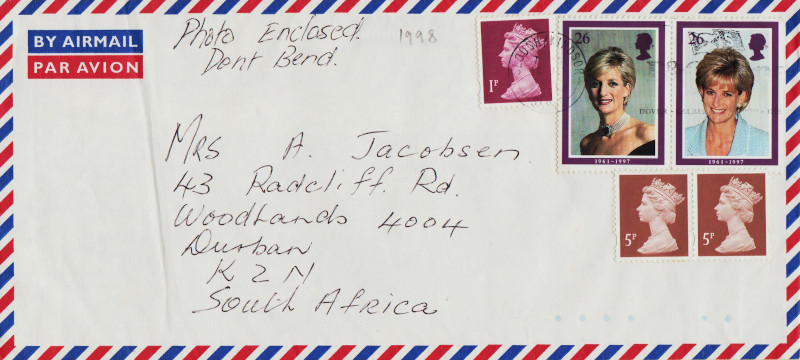 BY AIRMAIL
PAR AVION
Photo Enclosed.
Dont Bend.
1998
1P
26
1961-1997
26
1961-1997
5P
5P
Mrs A. Jacobsen.
43 Radcliff. Rd.
Woodlands 4004
Durban
KZN
South Africa